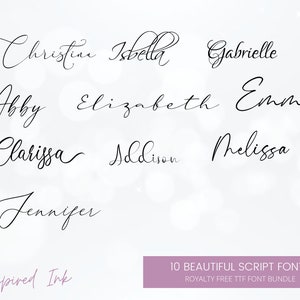 Christina Isbella Gabrielle
Abby Elizabeth Emm
Clarissa Addison Melissa
Jennifer
10 BEAUTIFUL SCRIPT FONT
ROYALTY FREE TTF FONT BUNDLE
spired Ink